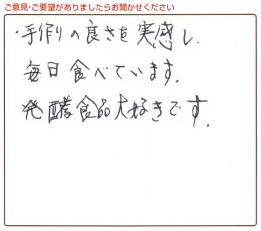 ご意見・ご要望がありましたらお聞かせください
・手作りの良さを実感し、
毎日食べています。
発酵食品大好きです。